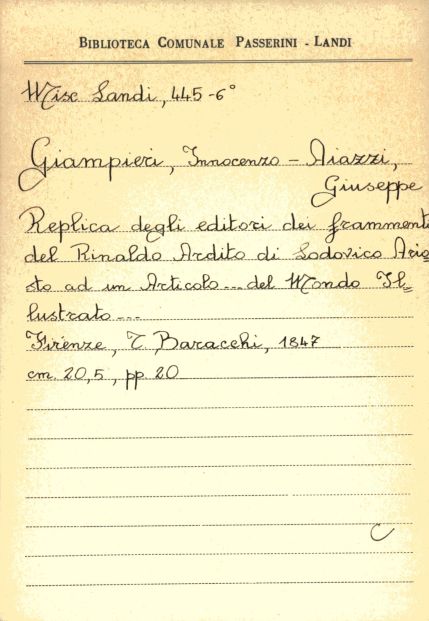 BIBLIOTECA COMUNALE PASSERINI - LANDI
Misc Landi, 445-6°
Giampieri, Innocenzo - Aiazzi,
Giuseppe
Replica degli editori dei frammenti
del Rinaldo Ardito di Lodovico Ario
sto ad un Articolo ... del Mondo Il=
lustrato ...
Firenze, T. Baracchi, 1847
cm. 20,5, pp. 20
C